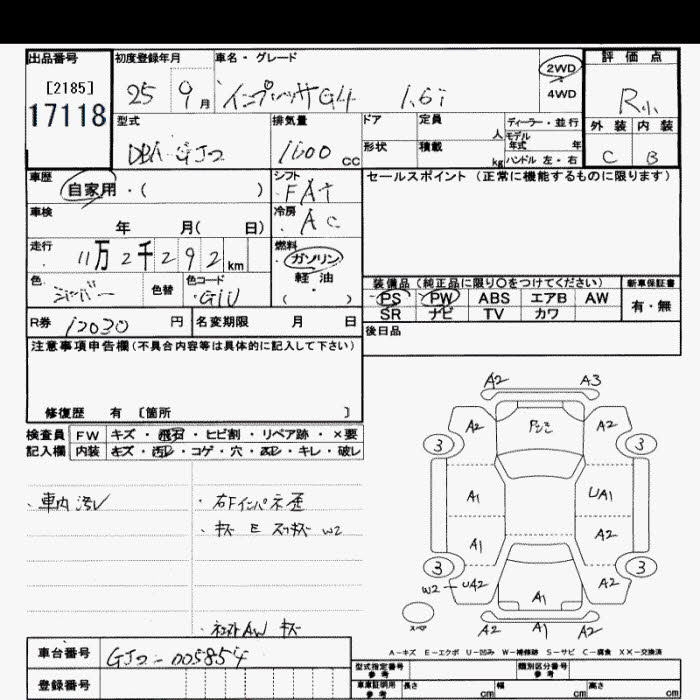 出品番号 初度登録年月 車名・グレード 評価点
[2185]
17118
25 9月 インプレッサG4 1.6i
2WD
4WD
R小
型式 排気量 ドア 定員 人 ディーラー・並行
モデル年式 年
外装 内装
DBA-GJ2 1600cc
形状 積載 kg ハンドル 左・右
C B
車歴 シフト セールスポイント(正常に機能するものに限ります)
自家用・( ) FAT
車検 冷房
年 月( 日) AC
走行 燃料
11万2千292km ガソリン
軽油
( )
色 色替 色コード
シルバー G1U
装備品(純正品に限り〇をつけてください) 新車保証書
PS PW ABS エアB AW 有・無
SR ナビ TV カワ
R券 12030円 名変期限 月 日
後日品
注意事項申告欄(不具合内容等は具体的に記入して下さい)
修復歴 有 〔箇所 〕
検査員 FW キズ・飛石・ヒビ割・リペア跡・×要
記入欄 内装 キズ・汚レ・コゲ・穴・スレ・キレ・破レ
・車内汚レ
・右Fインパネ歪
・キズ E スリキズ W2
AW キズ
A2 A3
A2 A2
3 3
A1 UA1
A1 A2
3 3
W2 UA2 A2
A1
スペア
A2 A1 A2
A-キズ E-エクボ U-凹み W-補修跡 S-サビ C-腐食 XX-交換済
車台番号 GJ2-005854
登録番号
型式指定番号 参考 類別区分番号 参考
車庫証明用 参考 長さ cm 幅 cm 高さ cm